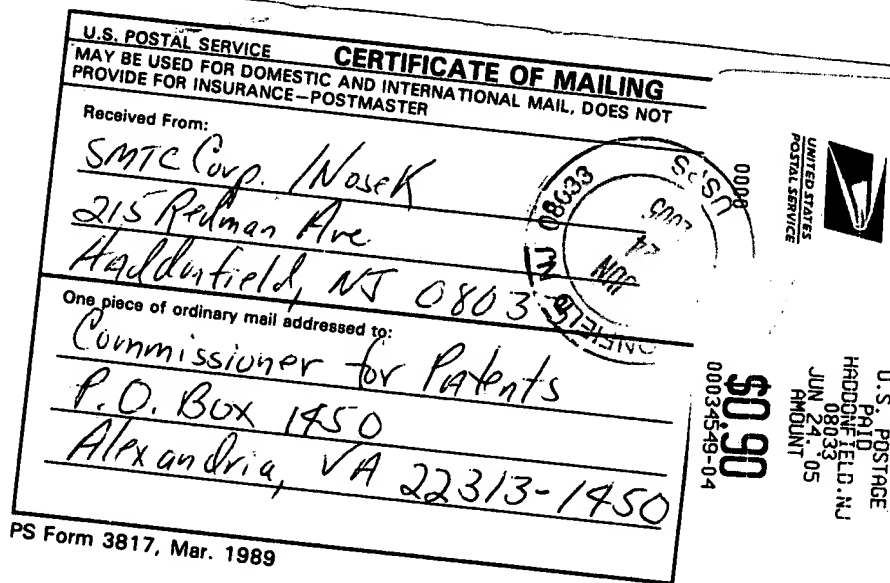 U.S. POSTAL SERVICE CERTIFICATE OF MAILING
MAY BE USED FOR DOMESTIC AND INTERNATIONAL MAIL, DOES NOT
PROVIDE FOR INSURANCE—POSTMASTER
Received From:
SMTC Corp. / Nosek
215 Redman Ave
Haddonfield, NJ 0803
One piece of ordinary mail addressed to:
Commissioner for Patents
P.O. Box 1450
Alexandria, VA 22313-1450
PS Form 3817, Mar. 1989
08033
USPS
JUN 24 2005
NJ
0000
UNITED STATES
POSTAL SERVICE
U.S. POSTAGE
PAID
HADDONFIELD.NJ
08033
JUN 24.'05
AMOUNT
$0.90
00034549-04